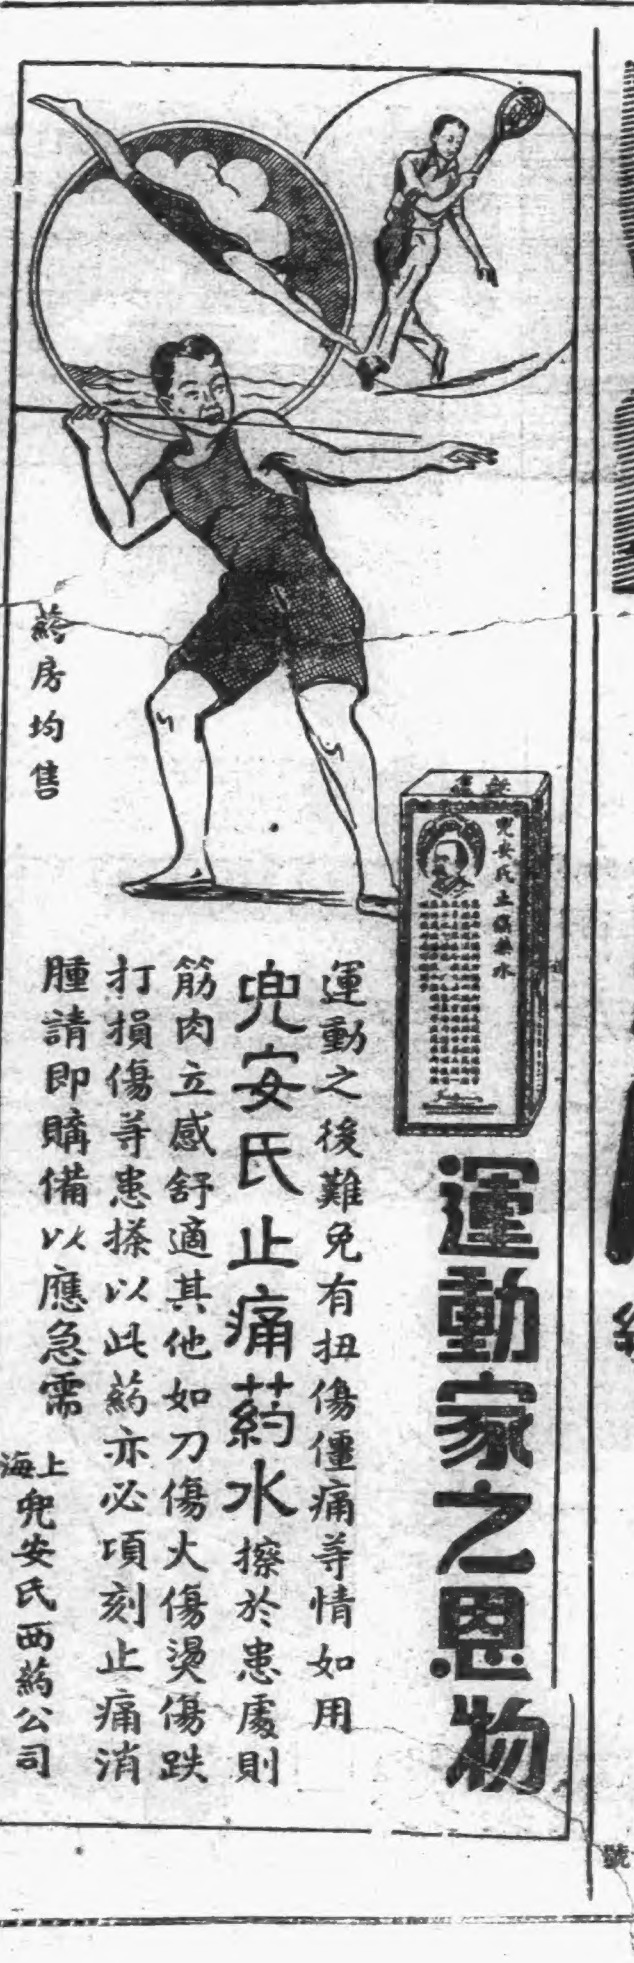 運動家之恩物
兜安氏止痛藥水
運動之後難免有扭傷僵痛等情如用
兜安氏止痛葯水擦於患處則
筋肉立感舒適其他如刀傷火傷燙傷跌
打損傷等患搽以此葯亦必頃刻止痛消
腫請即購備以應急需
上海
兜安氏西葯公司
葯房均售
號